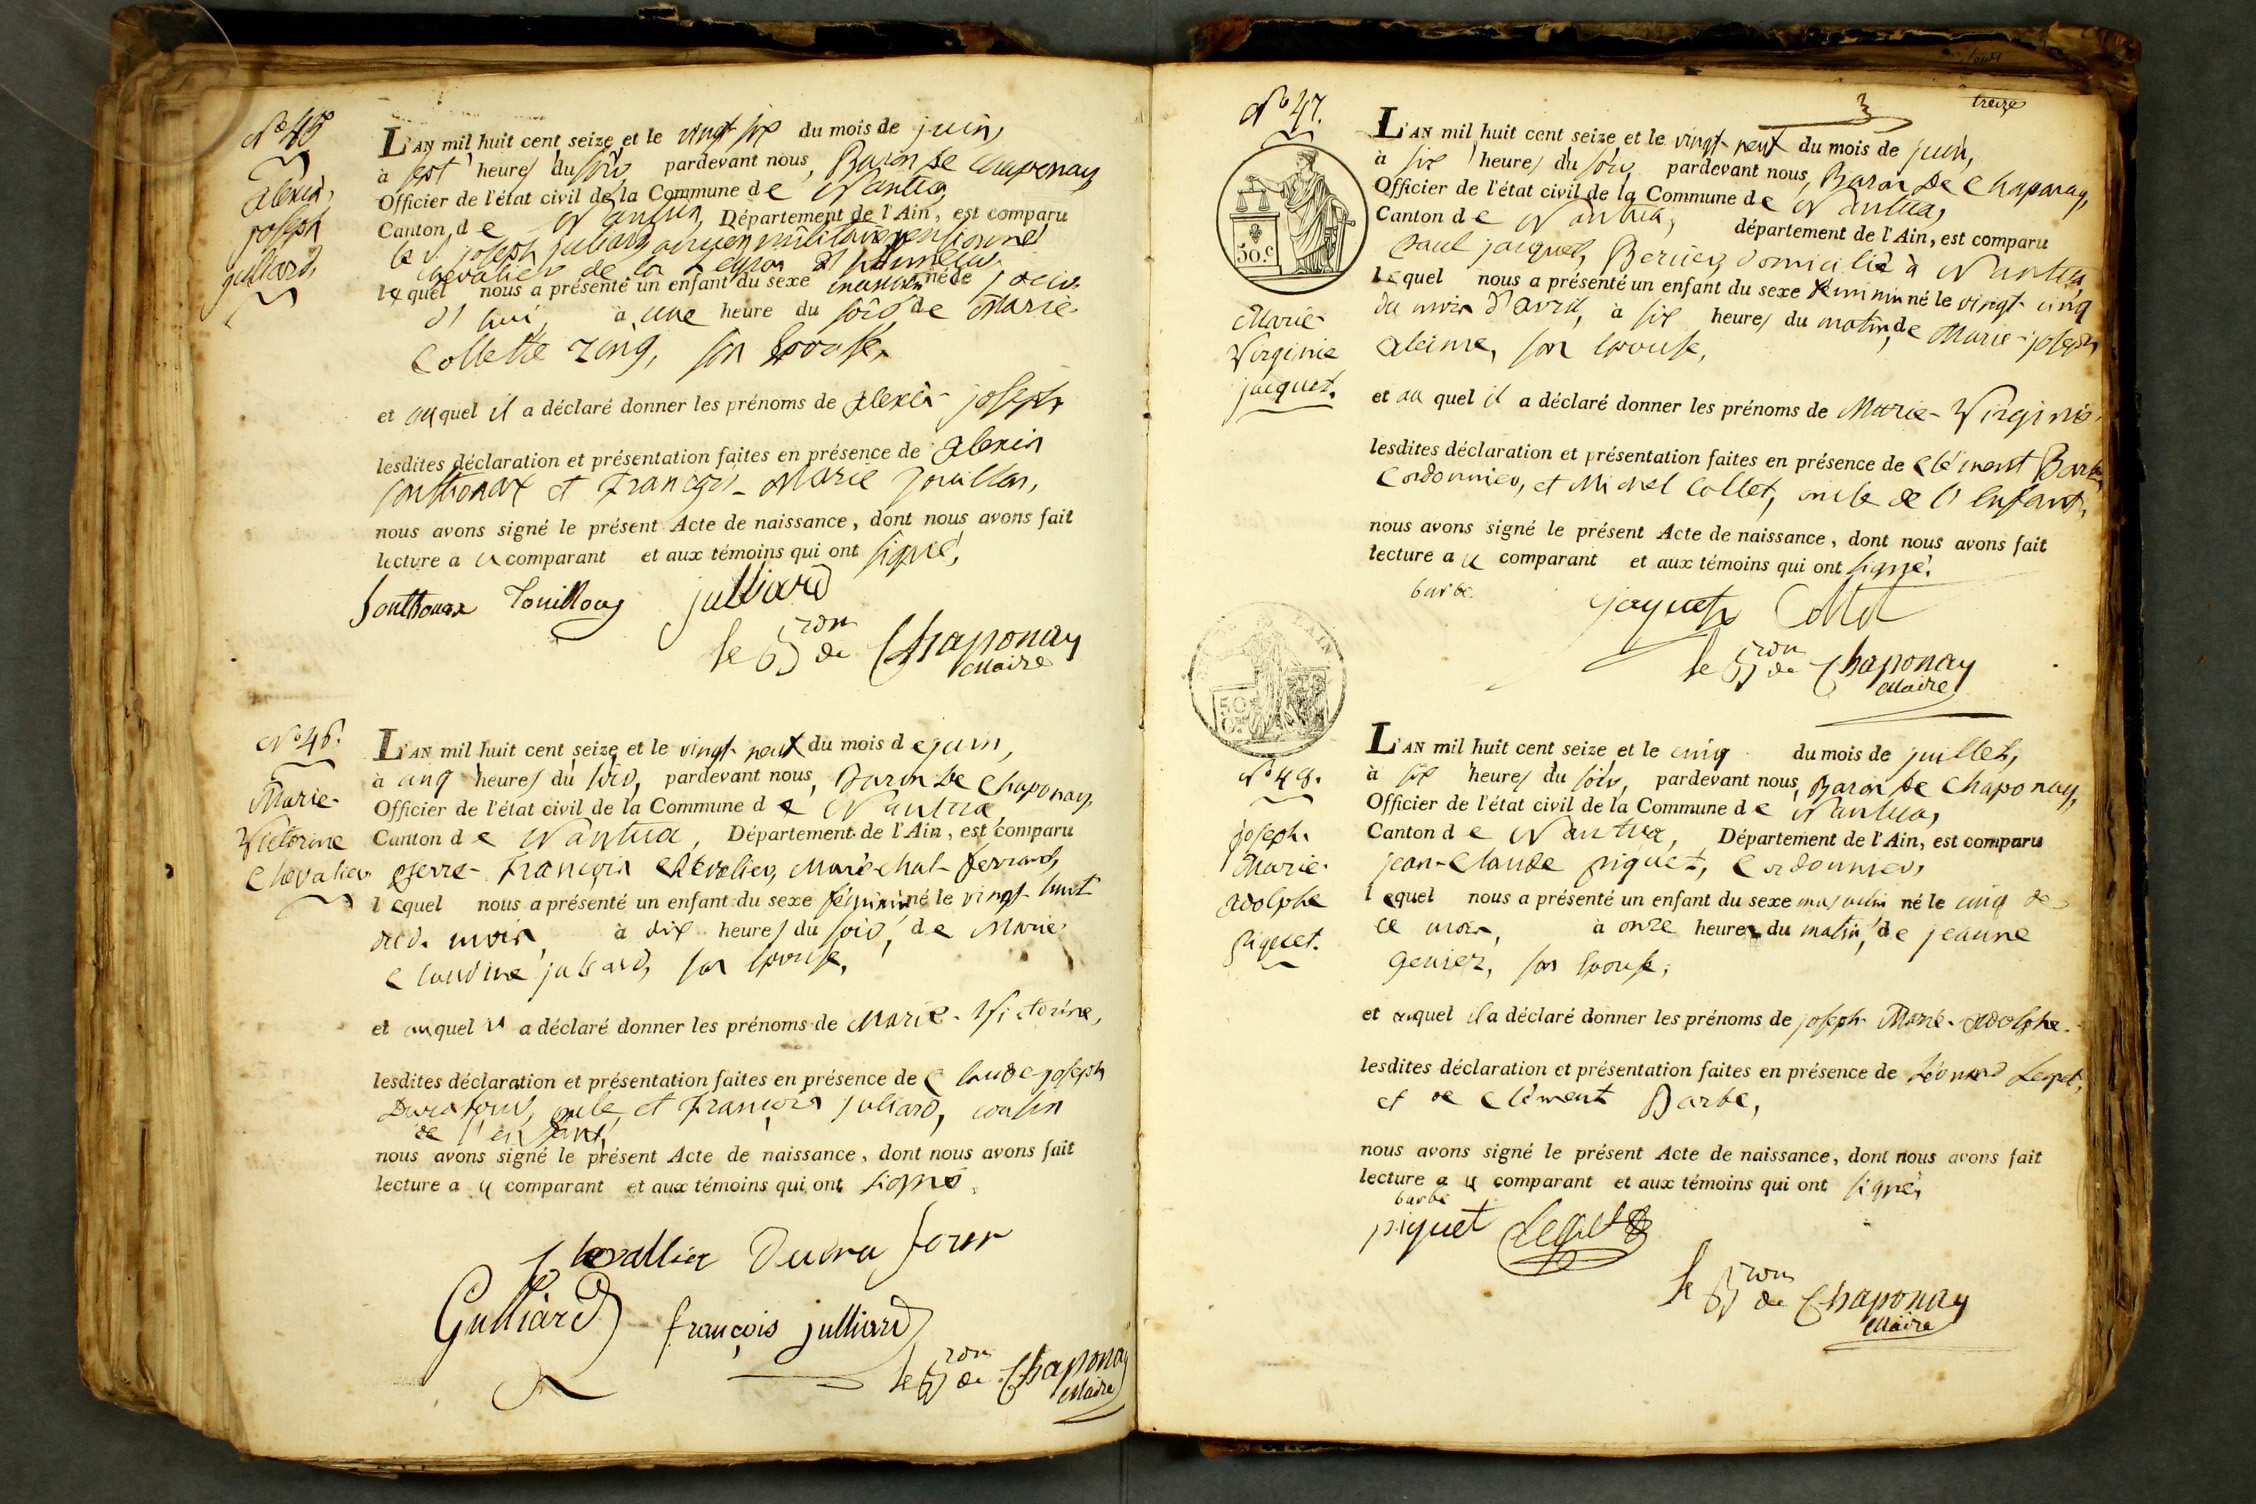 N.o 45
alexis
joseph
julliard,
L'AN mil huit cent seize, et le vingt six du mois de juin,
à sept heures du soir, pardevant nous, Baron De Chaponay
Officier de l'état civil de la Commune de Nantua
Canton de Nantua, Département de l'Ain, est comparu
le S. joseph julliard ancien militaire pensionné
chevalier de la Legion d'honneur
lequel nous a présenté un enfant du sexe masculin né le jour
d'hui à une heure du soir de Marie
Collette son Epouse,
et auquel il a déclaré donner les prénoms de alexis joseph
lesdites déclaration et présentation faites en présence de alexis
Sonthonax et François-Marie
nous avons signé le présent Acte de naissance, dont nous avons fait
lecture au comparant et aux témoins qui ont signé,
Sonthonax Touillon julliard
le Bron de Chaponay
Maire
N.o 46.
Marie-
Victorine
Chevalier
L'AN mil huit cent seize, et le vingt neuf du mois de juin,
à cinq heures du soir, pardevant nous, Baron De Chaponay,
Officier de l'état civil de la Commune de Nantua
Canton de Nantua, Département de l'Ain, est comparu
pierre-François Chevalier, Maréchal-ferrand,
lequel nous a présenté un enfant du sexe féminin né le vingt-huit
dud. mois, à dix heures du soir, de Marie
Claudine julliard, son Epouse,
et auquel il a déclaré donner les prénoms de Marie-Victorine,
lesdites déclaration et présentation faites en présence de Claude joseph
oncle, et François julliard, cousin
de l'enfant,
nous avons signé le présent Acte de naissance, dont nous avons fait
lecture au comparant et aux témoins qui ont signé.
chevallier Ducrafour
Gulliard françois julliard
le Bron de Chaponay
Maire
treize
N.o 47.
50.c
Marie-
Virginie
jacquet.
L'AN mil huit cent seize, et le vingt neuf du mois de juin,
à six heures du soir, pardevant nous, Baron De Chaponay,
Officier de l'état civil de la Commune de Nantua,
Canton de Nantua, département de l'Ain, est comparu
Paul jacquet, domicilié à Nantua,
lequel nous a présenté un enfant du sexe féminin né le vingt-cinq
du mois d'avril, à six heures du matin, de Marie-joseph
son Epouse,
et auquel il a déclaré donner les prénoms de Marie-Virginie,
lesdites déclaration et présentation faites en présence de Clément Barbe
Cordonnier, et Michel Collet, oncle de l'enfant,
nous avons signé le présent Acte de naissance, dont nous avons fait
lecture au comparant et aux témoins qui ont signé.
barbe jaquet Collet
le Bron de Chaponay
Maire
50
C.es
N.o 48.
joseph-
Marie-
adolphe
piquet.
L'AN mil huit cent seize, et le cinq du mois de juillet,
à six heures du soir, pardevant nous, Baron De Chaponay,
Officier de l'état civil de la Commune de Nantua,
Canton de Nantua, Département de l'Ain, est comparu
jean-Claude piquet, Cordonnier,
lequel nous a présenté un enfant du sexe masculin né le cinq de
ce mois, à onze heures du matin, de jeanne
son Epouse,
et auquel il a déclaré donner les prénoms de joseph Marie-adolphe.
lesdites déclaration et présentation faites en présence de Léonard
et de Clément Barbe,
nous avons signé le présent Acte de naissance, dont nous avons fait
lecture au comparant et aux témoins qui ont signé,
barbe
piquet
le Bron de Chaponay
Maire